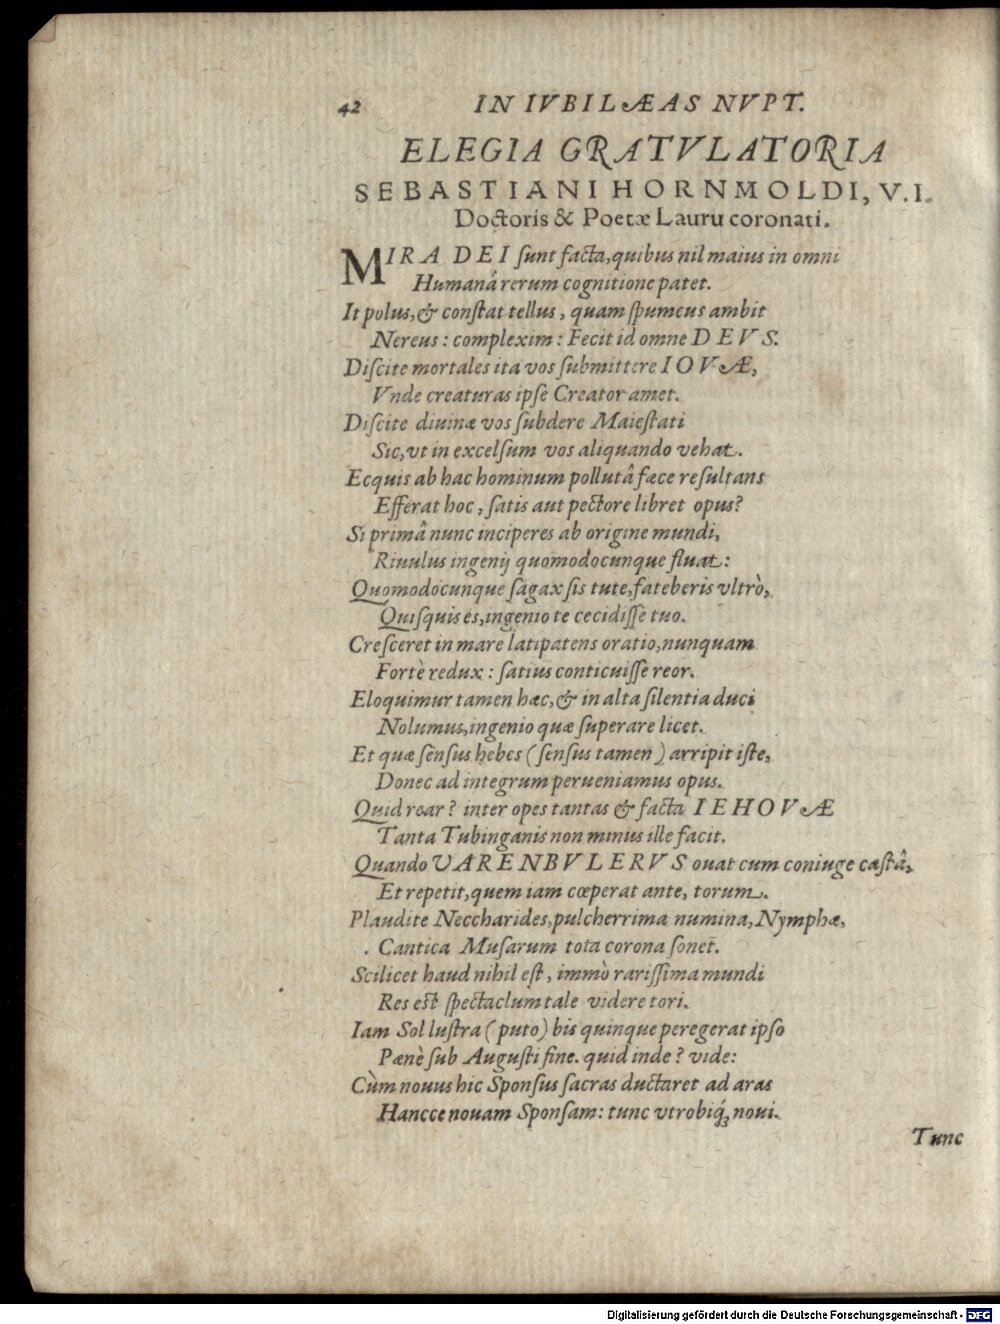 42 IN IVBILÆAS NVPT.
ELEGIA GRATVLATORIA
SEBASTIANI HORNMOLDI, V.I.
Doctoris & Poetæ Lauru coronati.
MIRA DEI ſunt facta, quibus nil maius in omni
Humanâ rerum cognitione patet.
It polus, & conſtat tellus, quam ſpumeus ambit
Nereus: complexim: Fecit id omne DEVS.
Diſcite mortales ita vos ſubmittere IOVÆ,
Vnde creaturas ipſe Creator amet.
Diſcite diuinæ vos ſubdere Maieſtati
Sic, vt in excelſum vos aliquando vehat.
Ecquis ab hac hominum pollutâ fæce reſultans
Efferat hoc, ſatis aut pectore libret opus?
Si primâ nunc inciperes ab origine mundi,
Riuulus ingenij quomodocunque fluat:
Quomodocunque ſagax ſis tute, fateberis vltrò,
Quiſquis es, ingenio te cecidiſſe tuo.
Creſceret in mare latipatens oratio, nunquam
Fortè redux: ſatius conticuiſſe reor.
Eloquimur tamen hæc, & in alta ſilentia duci
Nolumus, ingenio quæ ſuperare licet.
Et quæ ſenſus hebes (ſenſus tamen) arripit iſte,
Donec ad integrum perueniamus opus.
Quid rear? inter opes tantas & facta IEHOVÆ
Tanta Tubinganis non minus ille facit.
Quando VARENBVLERVS ouat cum coniuge caſtâ,
Et repetit, quem iam cœperat ante, torum.
Plaudite Neccharides, pulcherrima numina, Nymphæ,
Cantica Muſarum tota corona ſonet.
Scilicet haud nihil eſt, immò rariſſima mundi
Res eſt ſpectaclum tale videre tori.
Iam Sol luſtra (puto) bis quinque peregerat ipſo
Pænè ſub Auguſti fine. quid inde? vide:
Cùm nouus hic Sponſus ſacras ductaret ad aras
Hancce nouam Sponſam: tunc vtrobiq́ꝫ noui.
Tunc
Digitalisierung gefördert durch die Deutsche Forschungsgemeinschaft - DFG